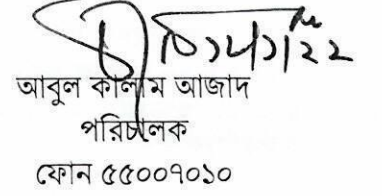 আবুল কালাম আজাদ
পরিচালক
ফোন ৫৫০০৭০১০